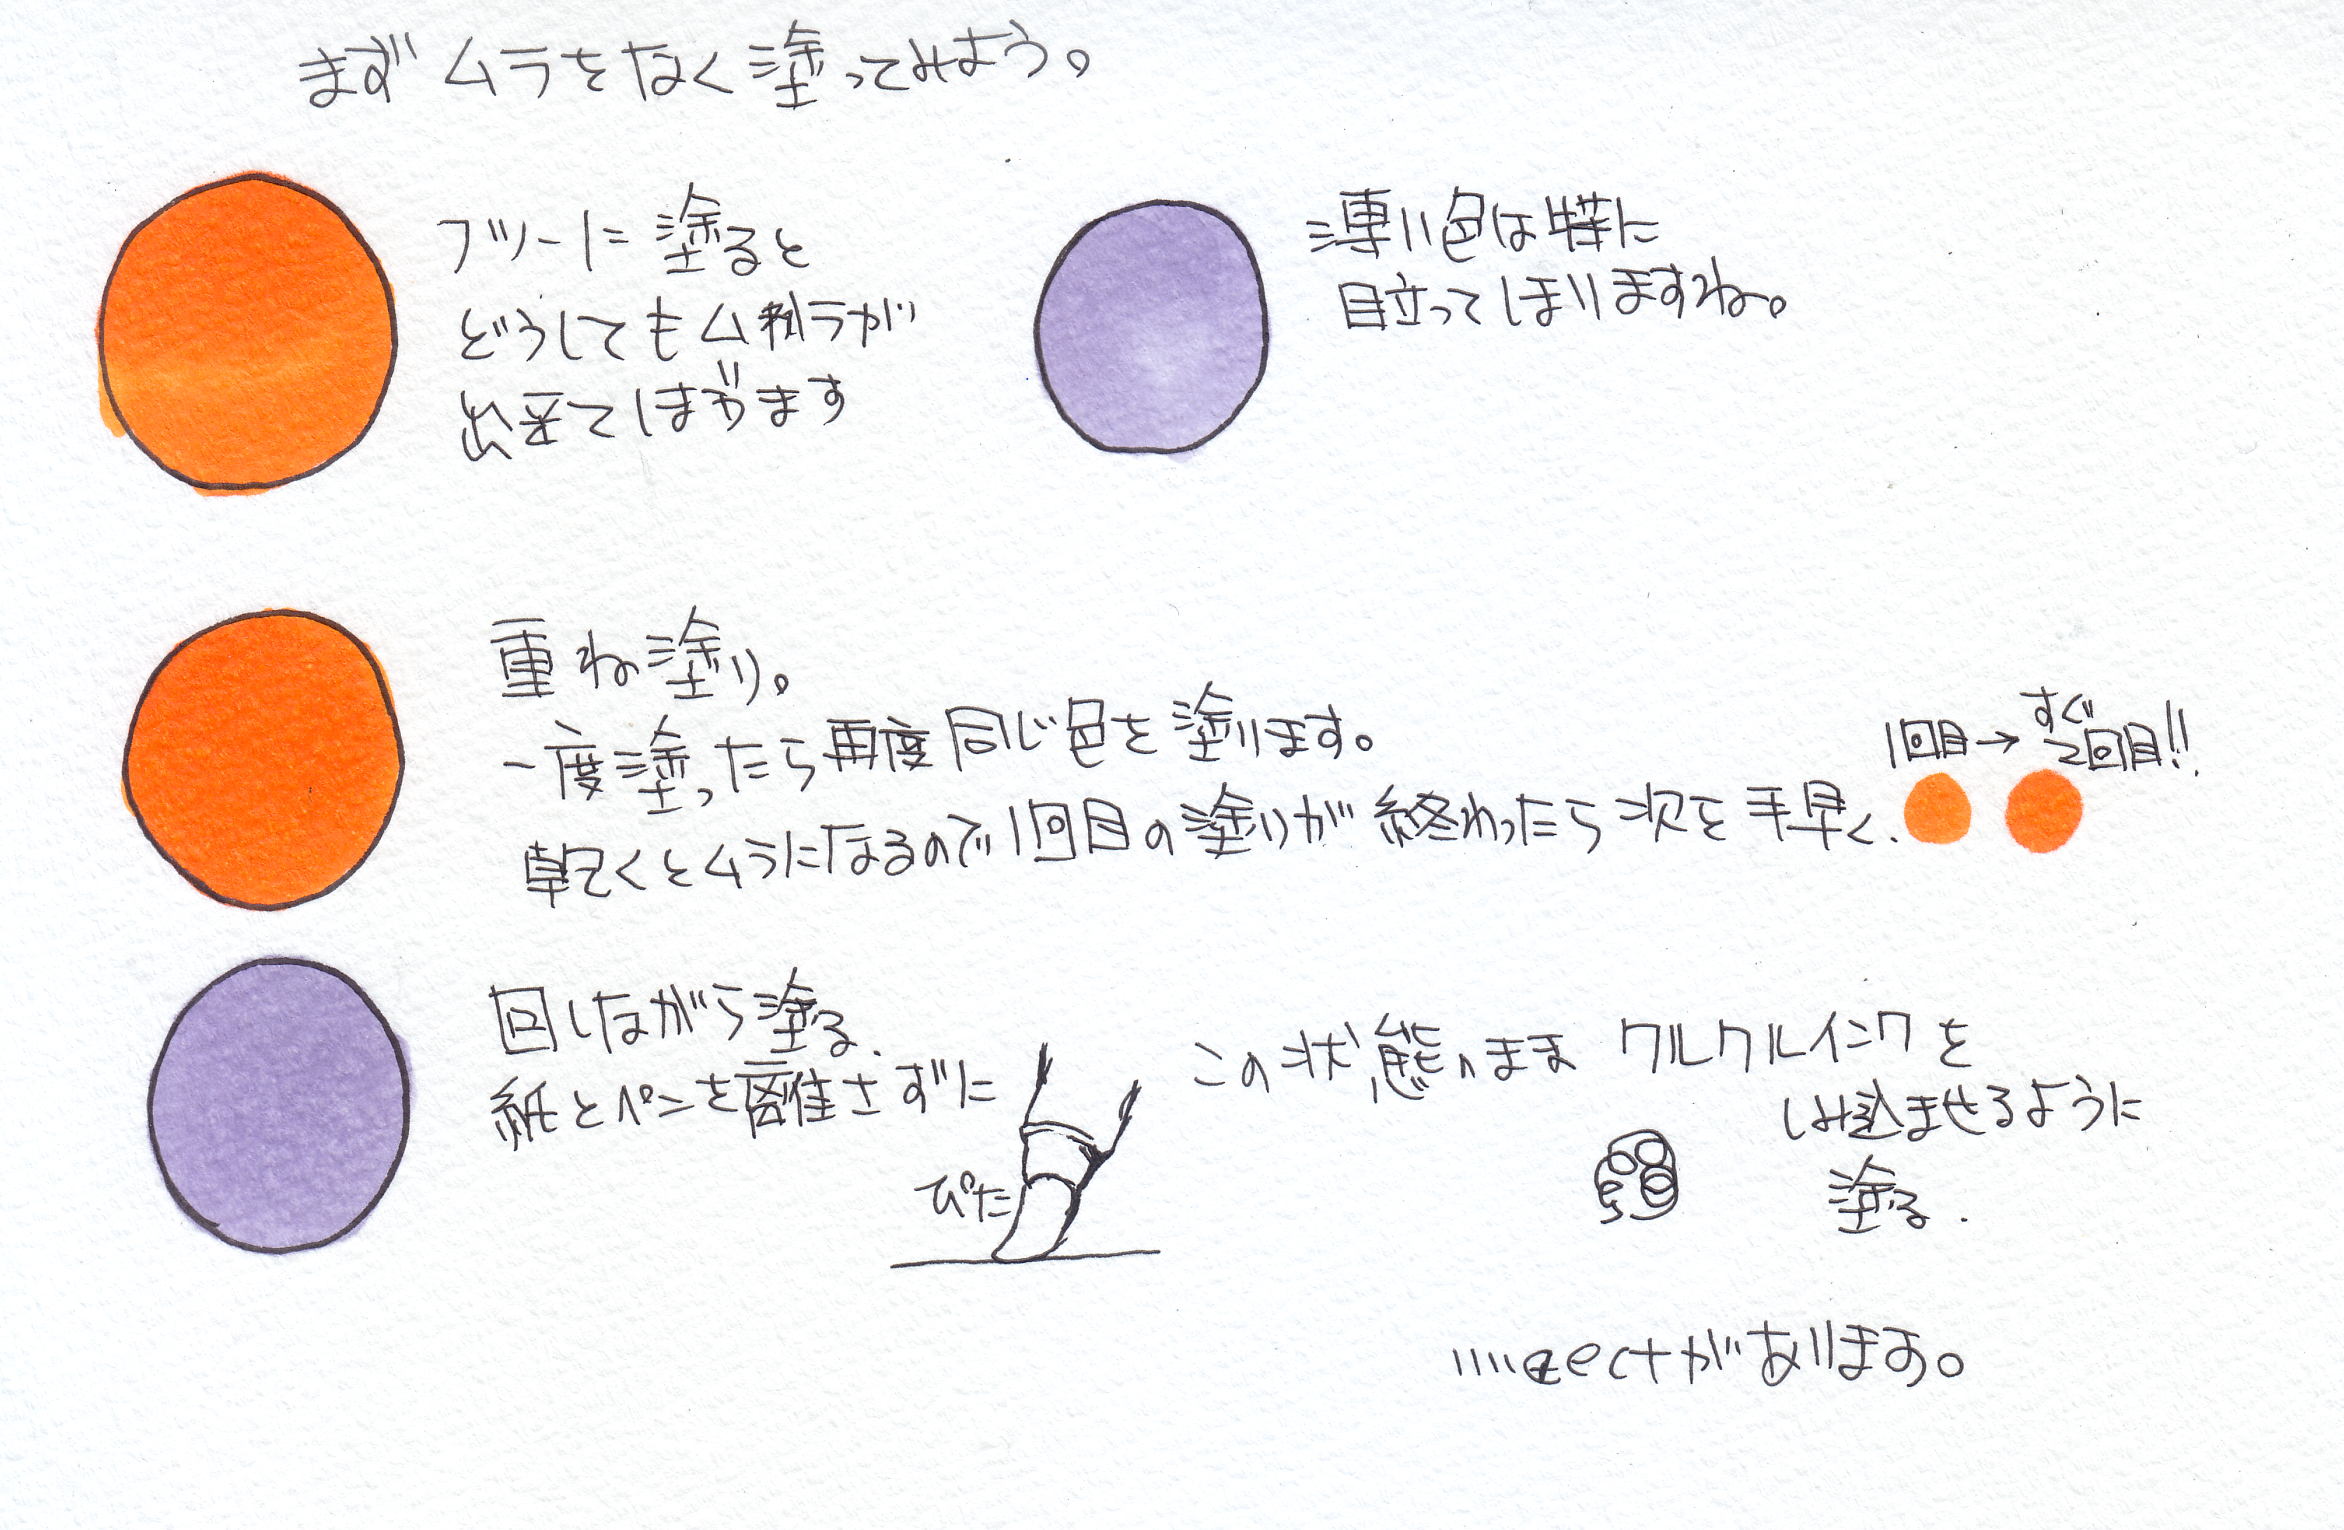 まずムラをなく塗ってみよう。
フツーに塗ると
どうしてもムラが
出来てしまいます
薄い色は特に
目立ってしまいますね。
重ね塗り。
一度塗ったら再度同じ色を塗ります。
1回目→すぐ2回目!!
乾くとムラになるので1回目の塗りが終わったら次を手早く.
回しながら塗る.
紙とペンを離さずに
ぴた
この状態のまま クルクルインクを
しみ込ませるように
塗る.
があります。